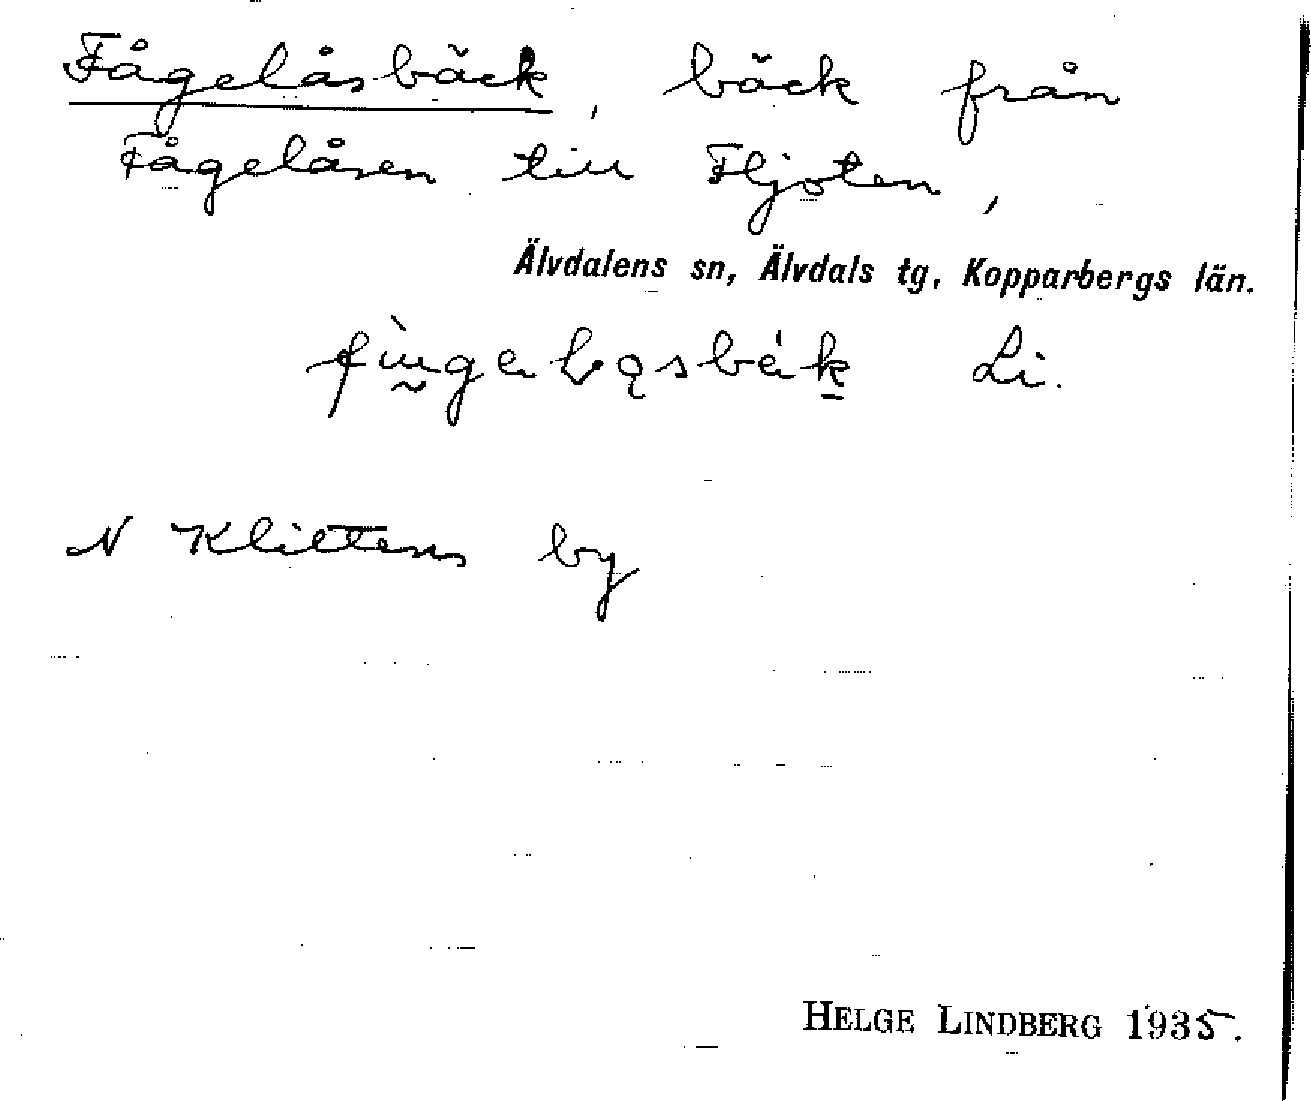 Fågelåsbäck, bäck från
Fågelåsen till Fljoten,
Älvdalens sn, Älvdals tg, Kopparbergs län.
Li.
N Klittens by
HELGE LINDBERG 1935.